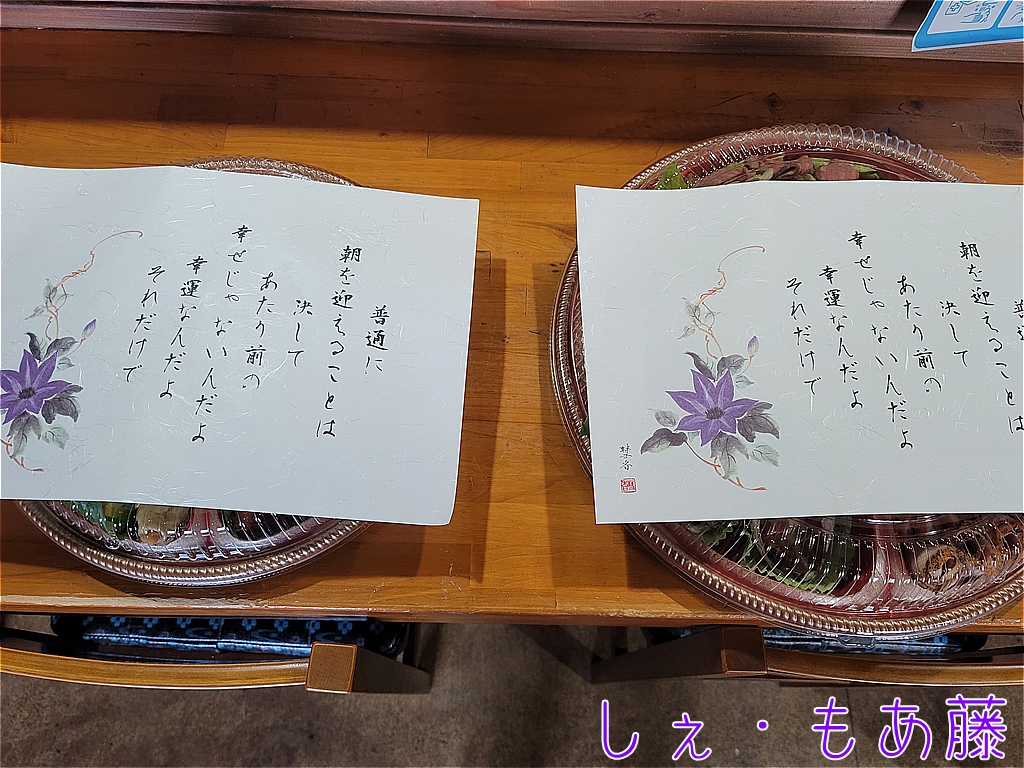 普通に
朝を迎えることは
決して
あたり前の
幸せじゃないんだよ
幸運なんだよ
それだけで
普通
朝を迎えることは
決して
あたり前の
幸せじゃないんだよ
幸運なんだよ
それだけで
しぇ・もあ藤